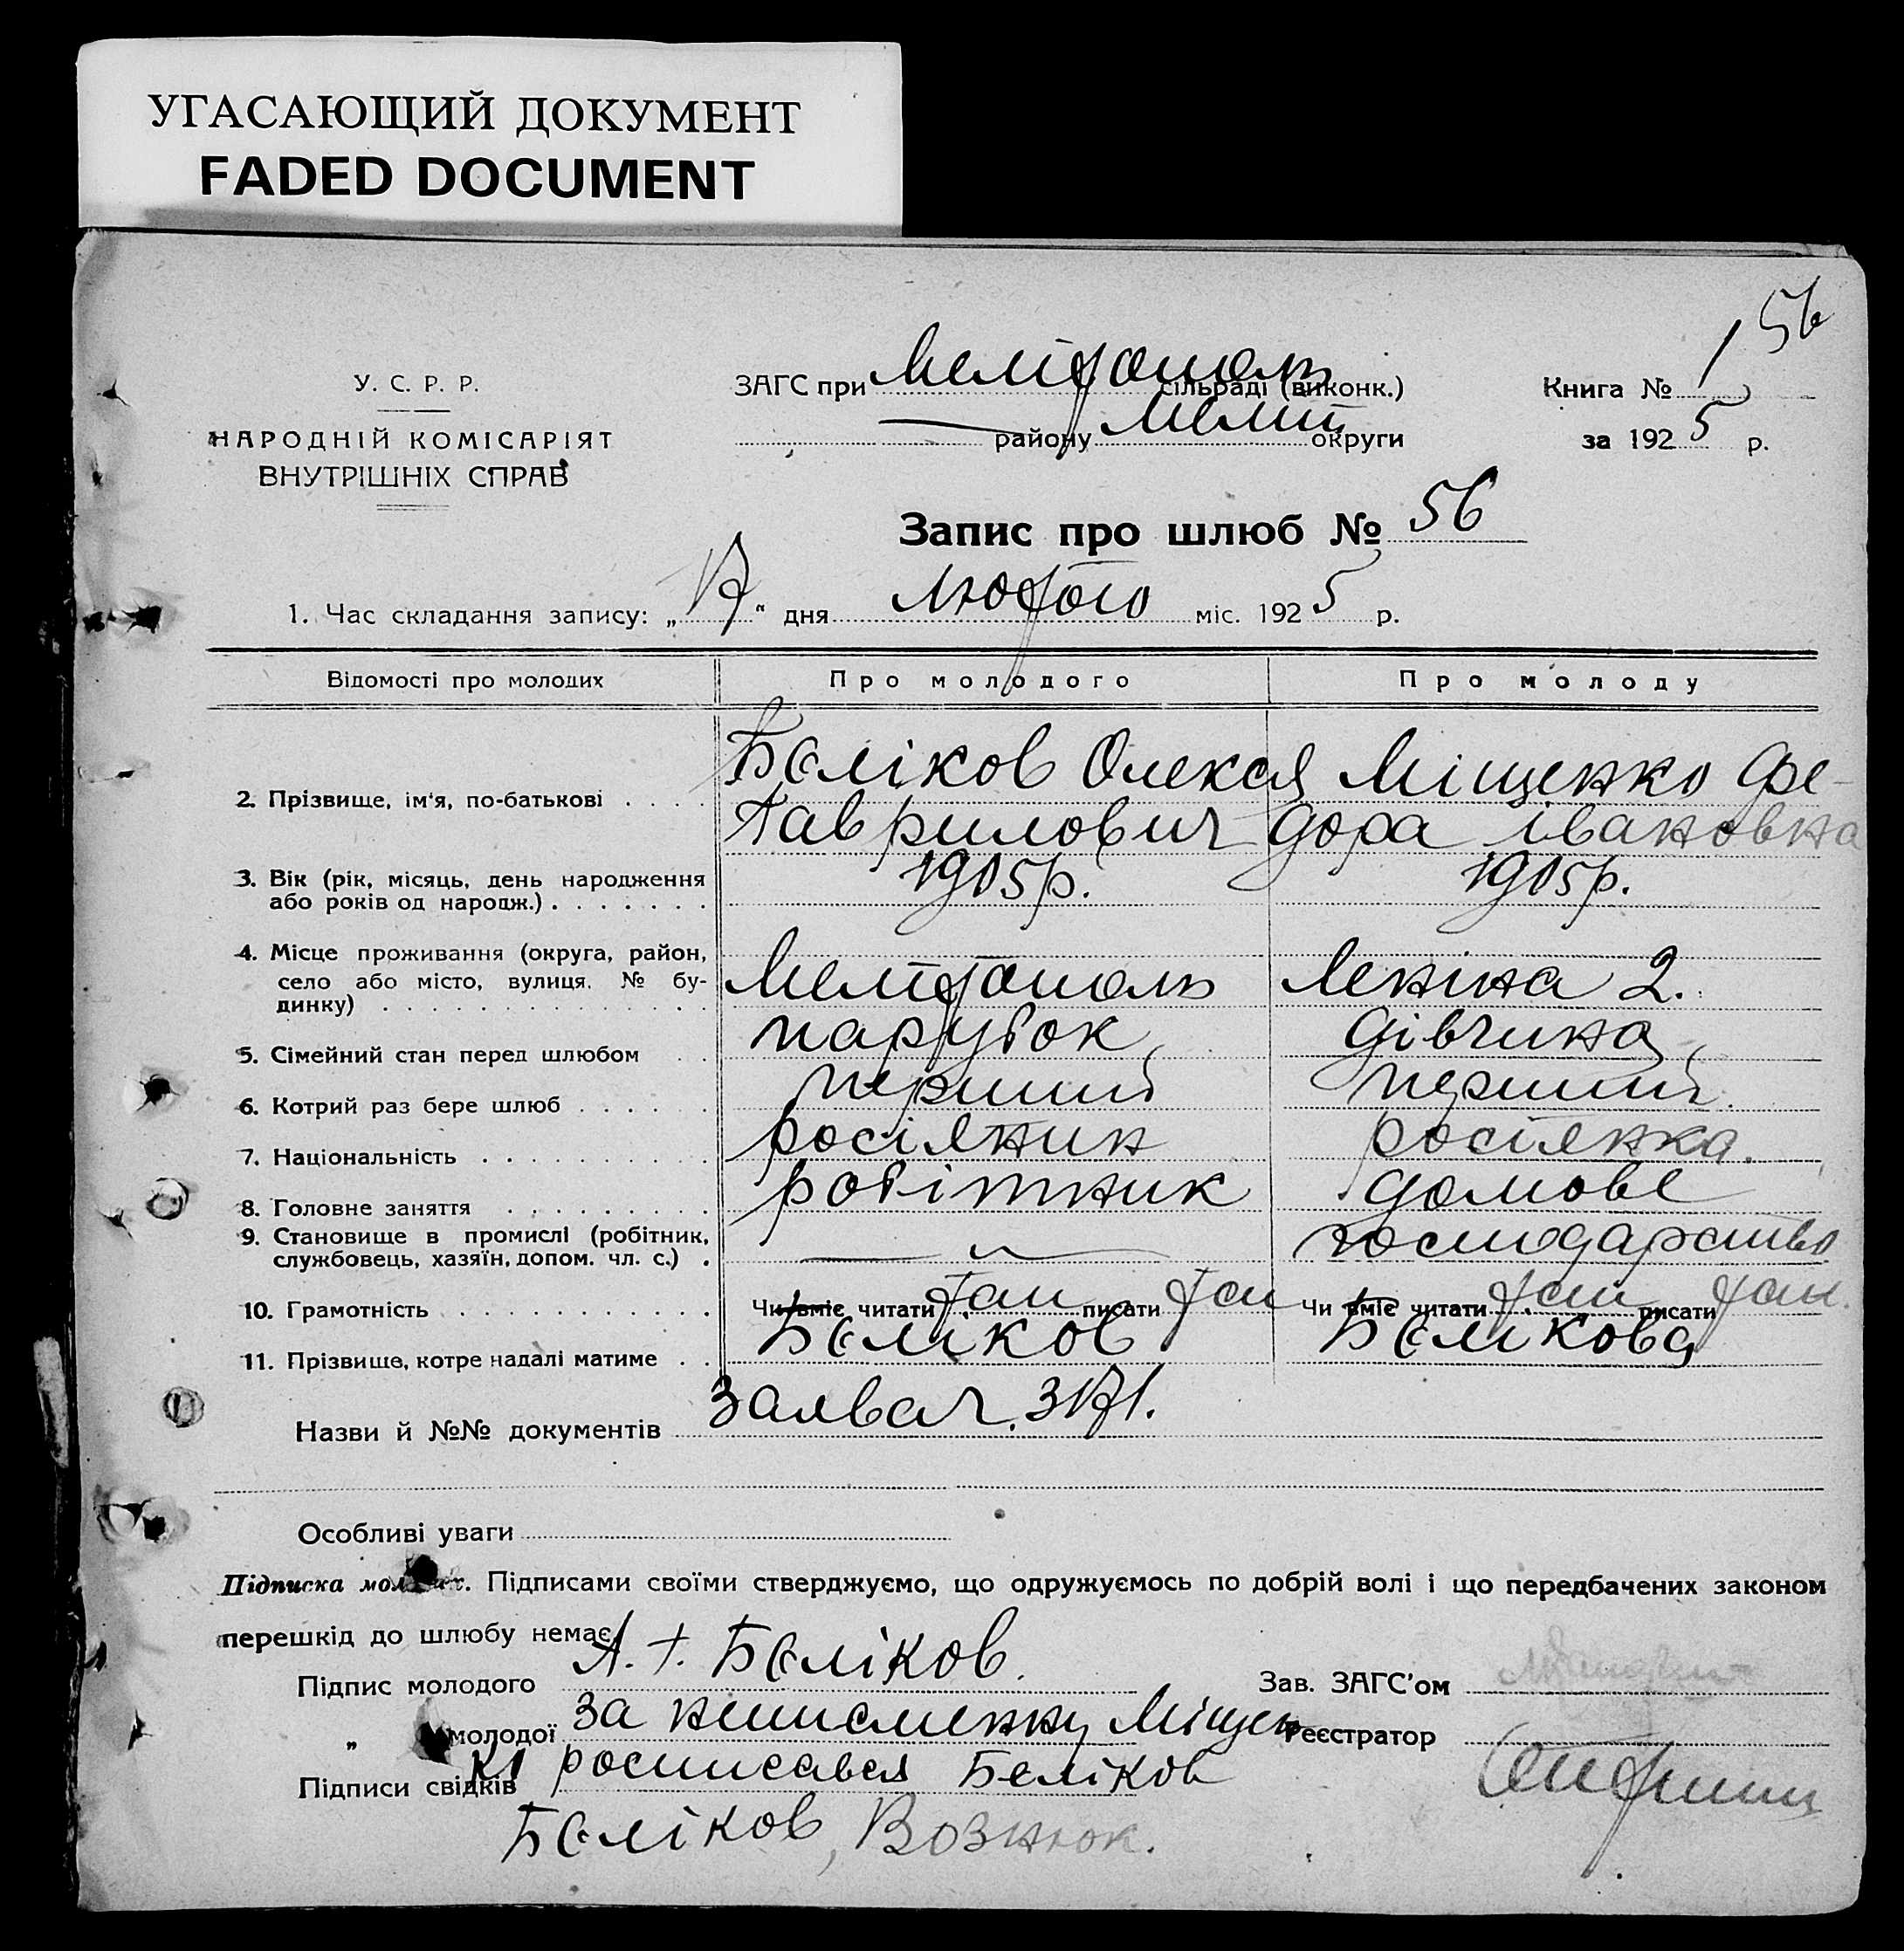 УГАСАЮЩИЙ ДОКУМЕНТ
FADED DOCUMENT
56
У. С. Р. Р.
НАРОДНІЙ КОМІСАРІЯТ
ВНУТРІШНІХ СПРАВ
ЗАГС при Мелітополь сільраді (виконк.)
району Меліт округи
Книга № 1
за 1925 р.
Запис про шлюб № 56
1. Час складання запису: „17“ дня Лютого міс. 1925 р.
Відомості про молодих
Про молодого
Про молоду
2. Прізвище, ім'я, по-батькові . . . .
Бєліков Олексій Міщенко Фе-
Гаврилович дора Івановна
3. Вік (рік, місяць, день народження
або років од народж.) . . . . . . .
1905р. 1905р.
4. Місце проживання (округа, район,
село або місто, вулиця, № бу-
динку) . . . . . . . . . . . . . .
Мелітополь Леніна 2.
5. Сімейний стан перед шлюбом . .
парубок, дівчина,
6. Котрий раз бере шлюб . . . . . .
перший перший
7. Національність . . . . . . . . . .
росіянин росіянка.
8. Головне заняття . . . . . . . . .
робітник домове
9. Становище в промислі (робітник,
службовець, хазяїн, допом. чл. с.) .
господарство
10. Грамотність . . . . . . . . . . . .
Чи вміє читати так писати так Чи вміє читати так писати так.
11. Прізвище, котре надалі матиме . .
Бєліков Бєлікова
Назви й №№ документів
3171.
Особливі уваги
Підписка молодих. Підписами своїми стверджуємо, що одружуємось по добрій волі і що передбачених законом
перешкід до шлюбу немає.
Підпис молодого А. Г. Бєліков.
Зав. ЗАГС'ом
„ молодої за неписменну Міщен
Реєстратор
Підписи свідків ко росписався Бєліков
Бєліков, Вознюк.